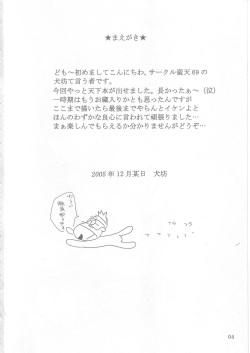 ★まえがき★
ども～初めましてこんにちわ。サークル蛮天69の
犬坊て言う者です。
今回やっと天下本が出せました。長かったぁ～（泣）
一時期はもうお蔵入りかとも思ったんですが
ここまで描いたら最後までやらんとイケンよと
ほんのわずかな良心に言われて頑張りました…
まぁ楽しんでもらえるか分かりませんがどうぞ…
2005年12月某日　犬坊
04